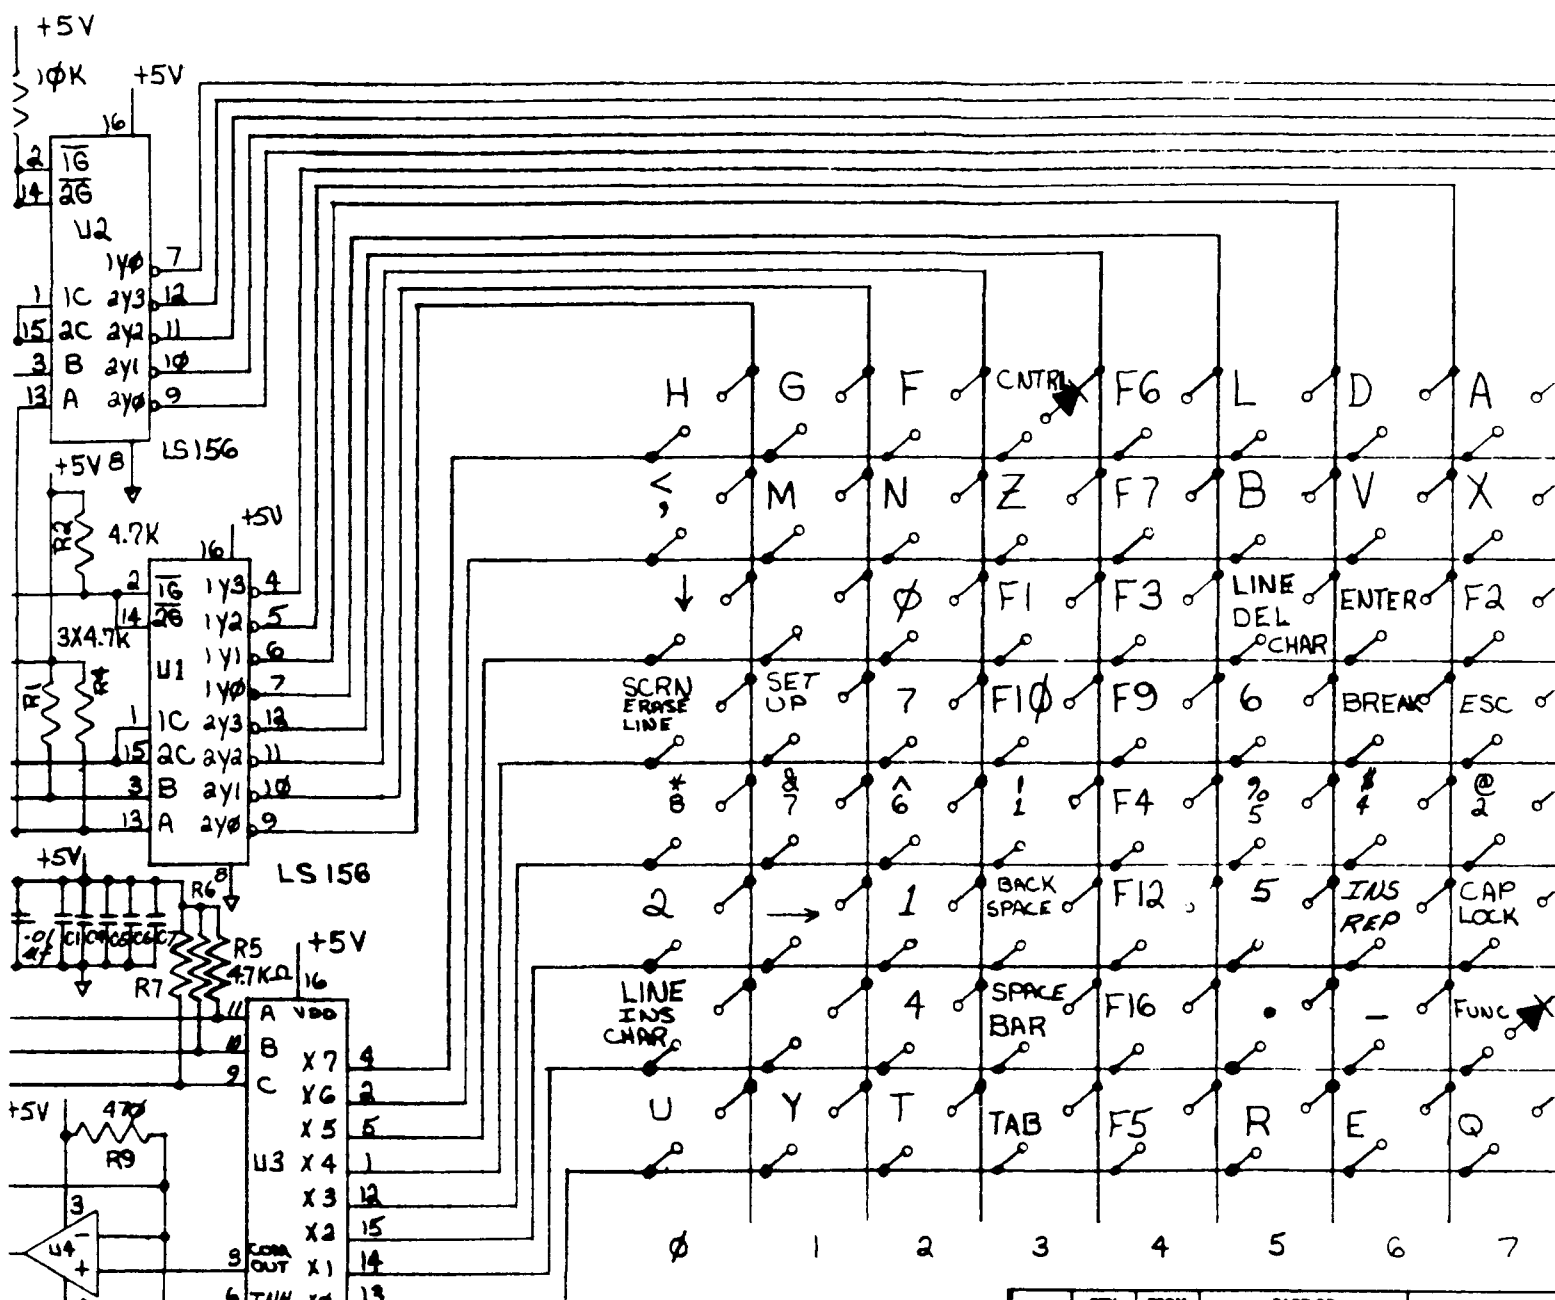 +5V
1ØK
+5V
16
2 1G
14 2G
U2
1YØ 7
1 1C 2Y3 12
15 2C 2Y2 11
3 B 2Y1 1Ø
13 A 2YØ 9
8
LS156
+5V
R2
4.7K
+5V
16
2 1G 1Y3 4
14 2G 1Y2 5
3X4.7K
1Y1 6
U1
1YØ 7
R1
R4
1 1C 2Y3 12
15 2C 2Y2 11
3 B 2Y1 1Ø
13 A 2YØ 9
8
LS156
+5V
.01
C1 C4 C5 C6 C7
R6
R5
4.7KΩ
R7
+5V
16
11 A VDD
1Ø B
9 C
X7 4
X6 2
X5 5
U3 X4 1
X3 12
X2 15
3 COM OUT X1 14
6 INH XØ 13
+5V
47Ø
R9
3
U4
-
+
H G F CNTRL F6 L D A
< , M N Z F7 B V X
↓ Ø F1 F3 LINE DEL CHAR ENTER F2
SCRN ERASE LINE SET UP 7 F1Ø F9 6 BREAK ESC
* 8 & 7 ^ 6 ! 1 F4 % 5 $ 4 @ 2
2 → 1 BACK SPACE F12 5 INS REP CAP LOCK
LINE INS CHAR 4 SPACE BAR F16 . - FUNC
U Y T TAB F5 R E Q
Ø 1 2 3 4 5 6 7